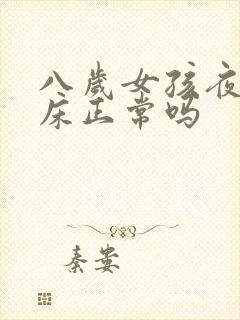 八歲女孩夜
床正常吗
秦娄